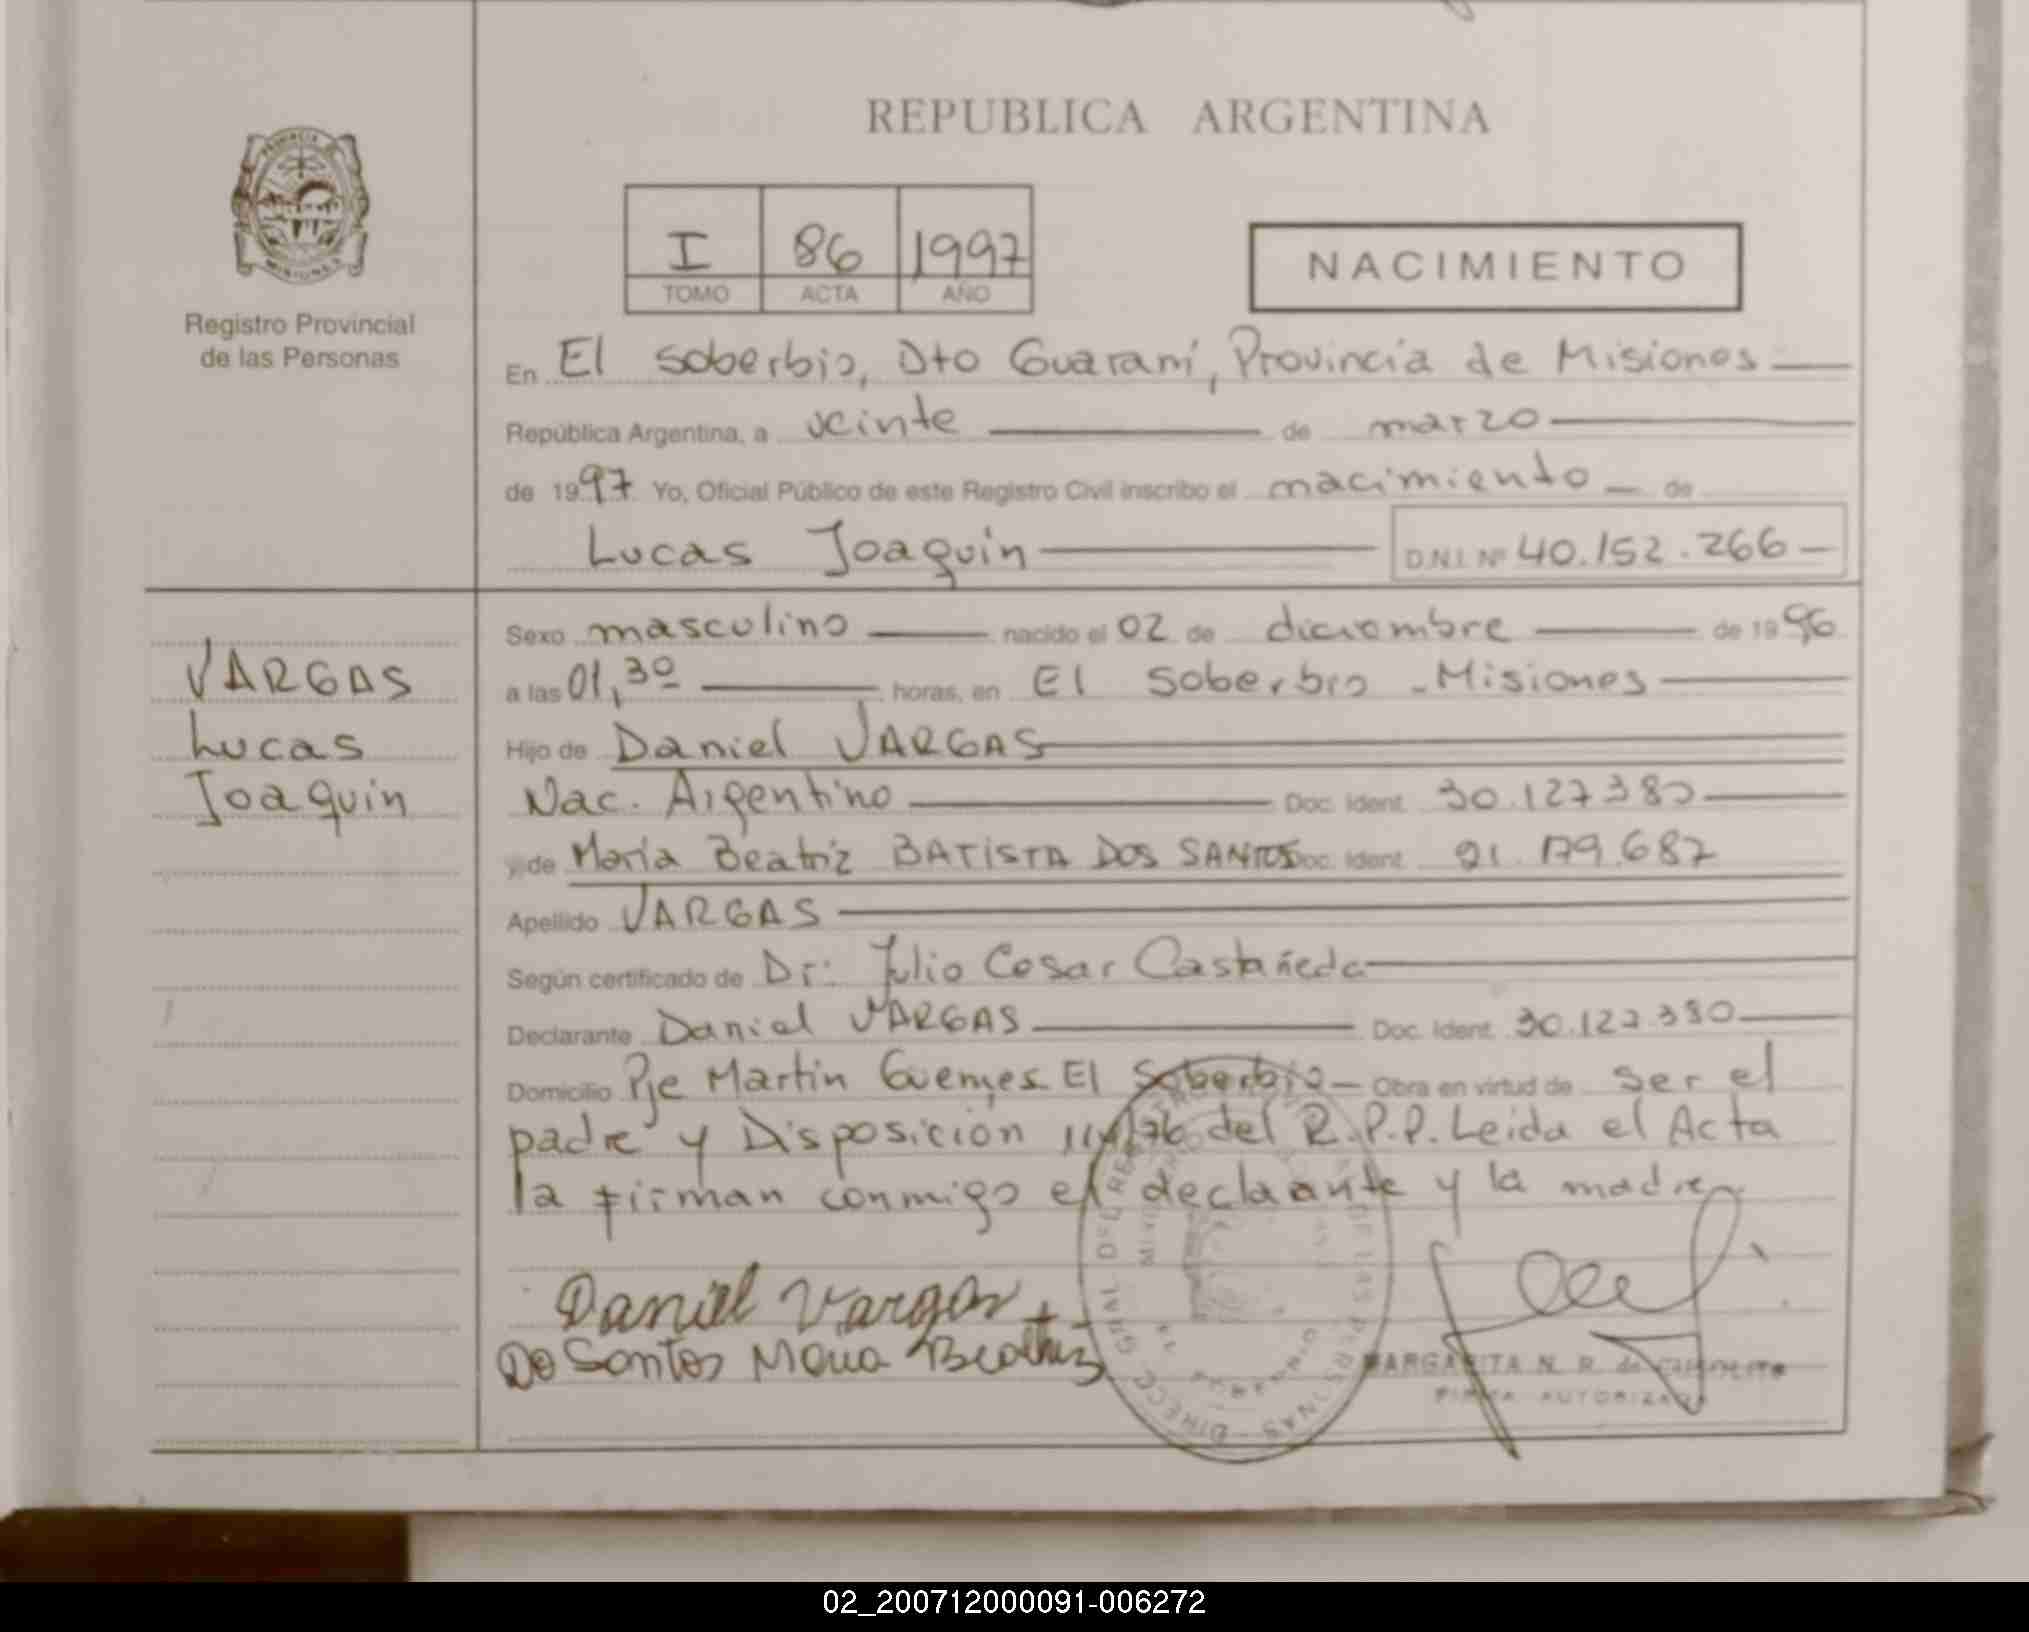 REPUBLICA ARGENTINA
PROVINCIA DE
MISIONES
Registro Provincial
de las Personas
I 86 1997
TOMO ACTA AÑO
NACIMIENTO
En El Soberbio, Dto Guaraní, Provincia de Misiones
República Argentina, a veinte de marzo
de 1997 Yo, Oficial Público de este Registro Civil inscribo el nacimiento de
Lucas Joaquín D.N.I. Nº 40.152.266
Sexo masculino nacido el 02 de diciembre de 1996
a las 01,30 horas, en El Soberbio - Misiones
Hijo de Daniel VARGAS
Nac. Argentino Doc. Ident. 30.127.380
y de María Beatriz BATISTA DOS SANTOS Doc. Ident. 179.687
Apellido VARGAS
Según certificado de Dr: Julio Cesar Castañeda
Declarante Daniel VARGAS Doc. Ident. 30.127.380
Domicilio Pje Martín Guemes El Soberbio Obra en virtud de ser el
padre y Disposición /76 del R.P.P. Leida el Acta
la firman conmigo el declaante y la madre
VARGAS
Lucas
Joaquín
Daniel Vargas
Do Santos Maria Beatriz
MARGARITA N. R. de
FIRMA AUTORIZADA
DIRECC. GRAL. DEL REG. DE LAS PERSONAS
02_200712000091-006272